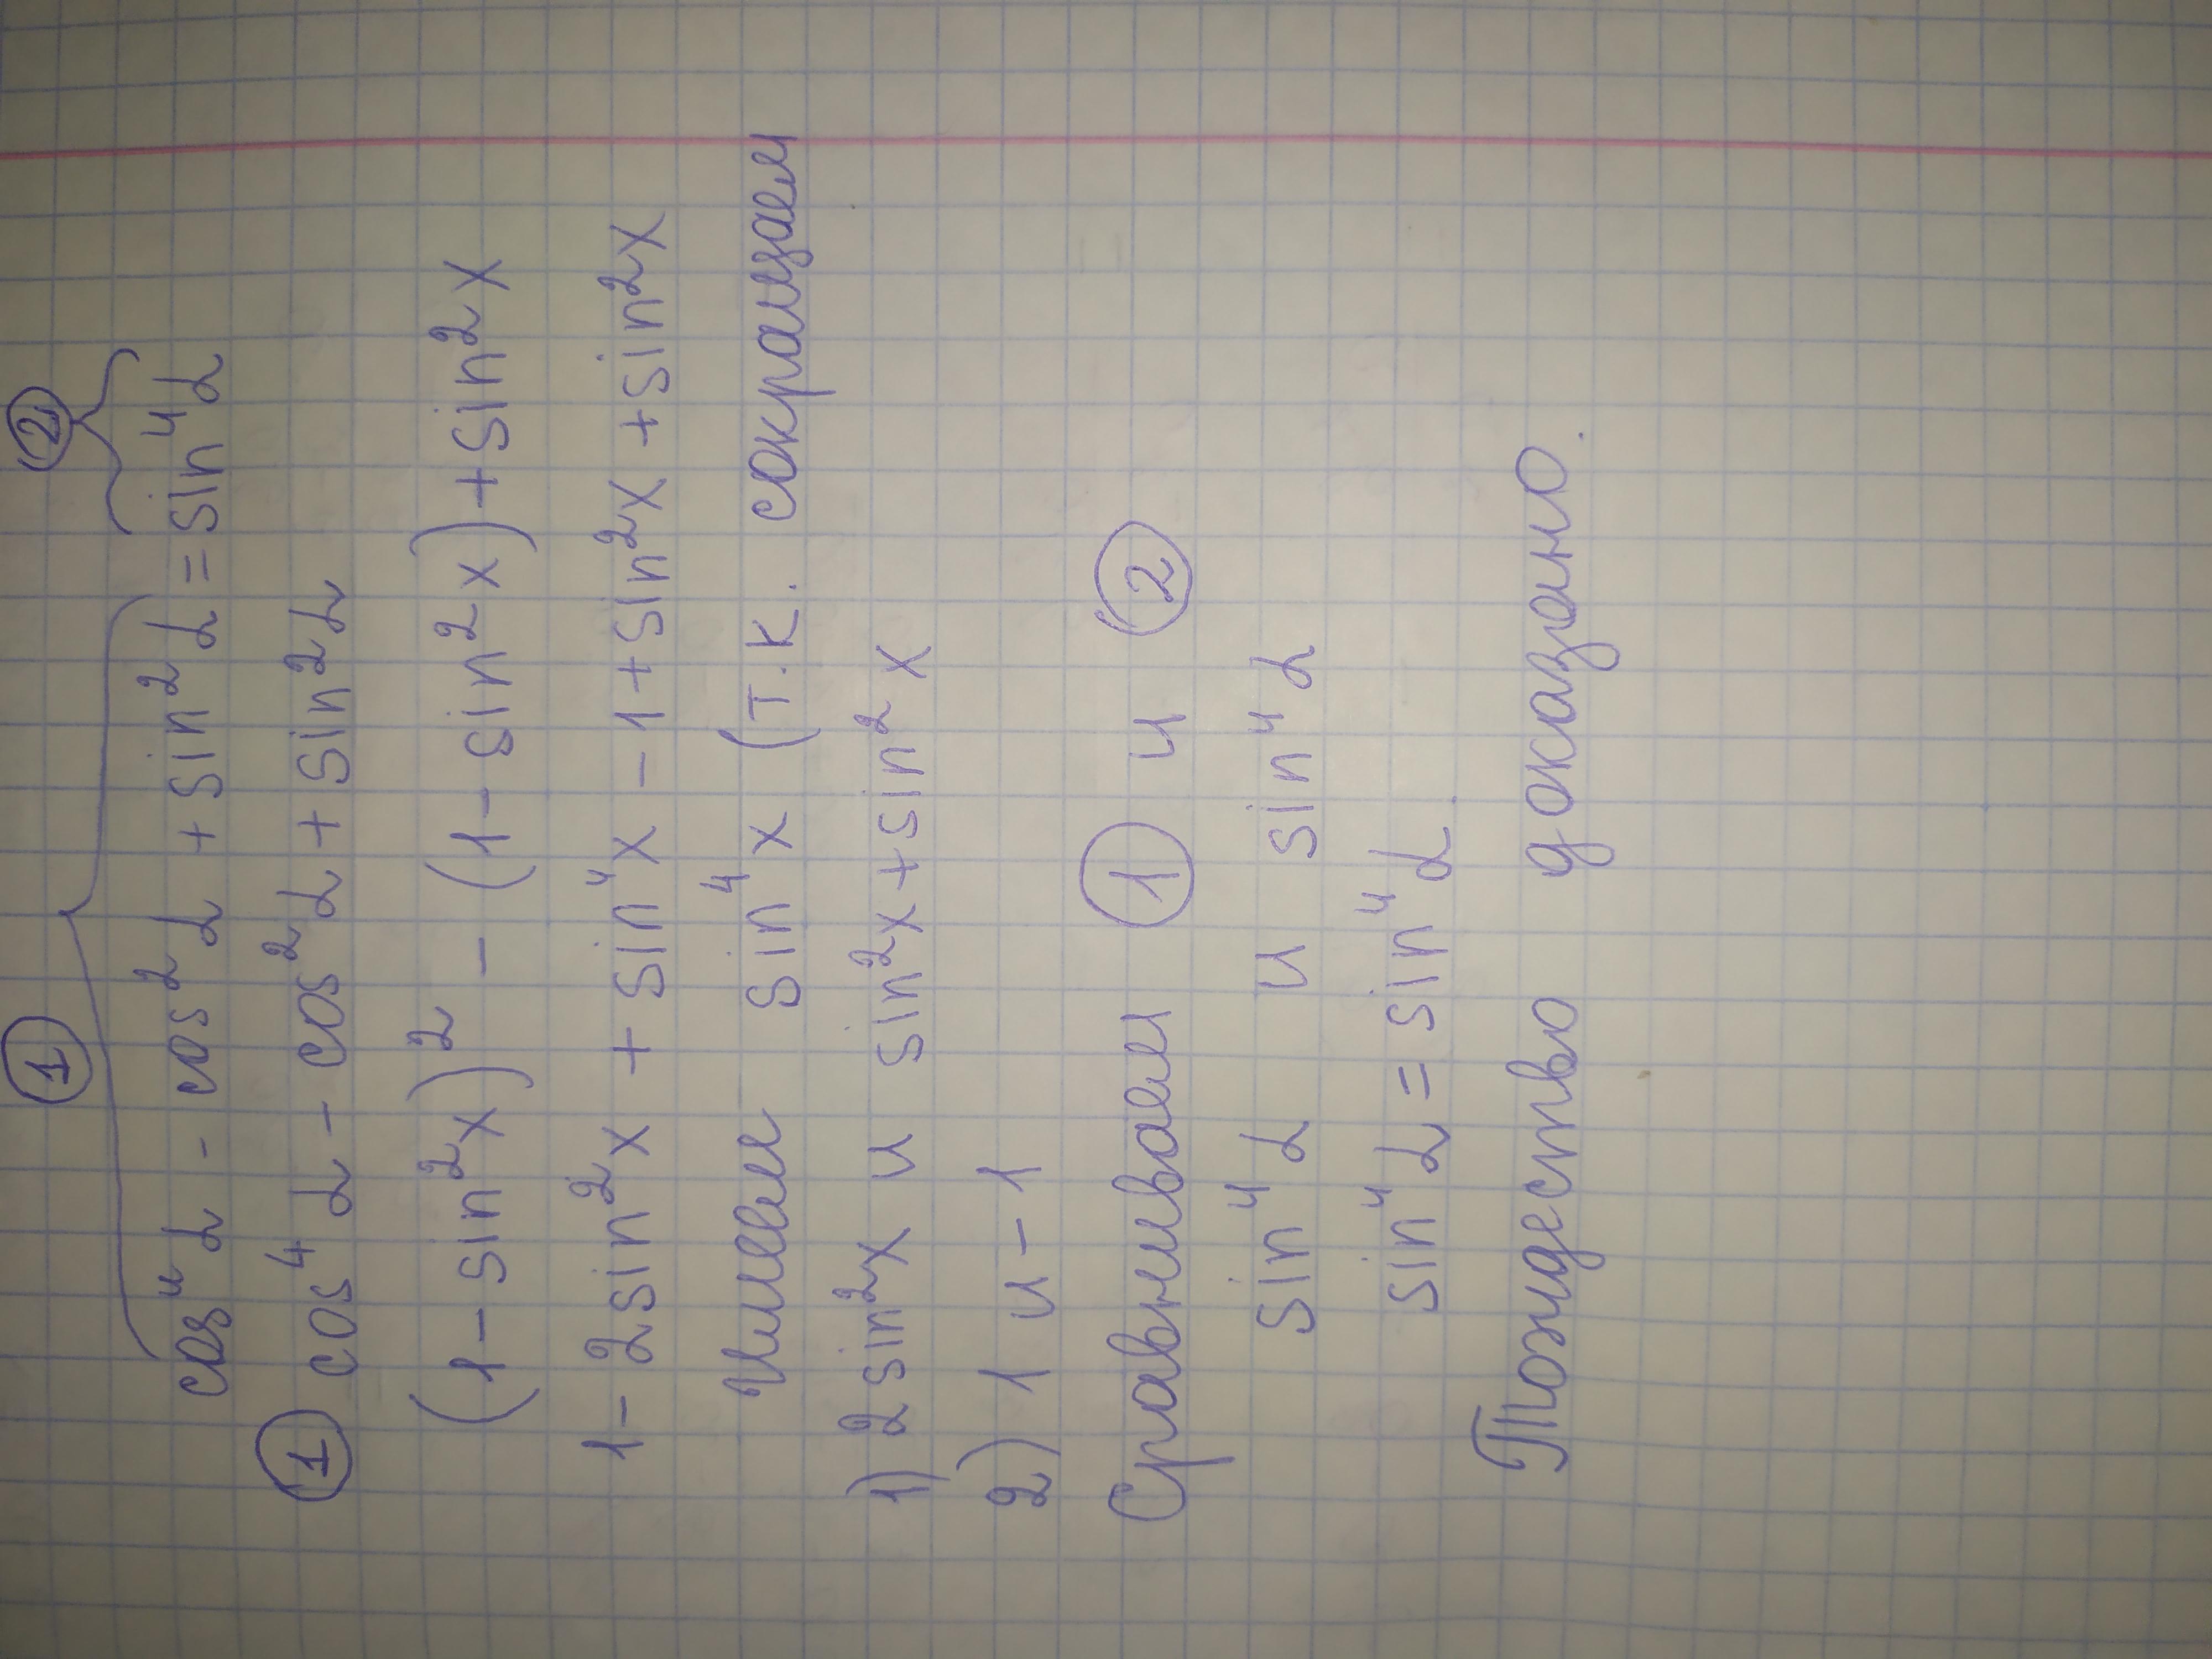 ① ②
cos⁴α - cos²α + sin²α = sin⁴α
① cos⁴α - cos²α + sin²α
(1 - sin²x)² - (1 - sin²x) + sin²x
1 - 2sin²x + sin⁴x - 1 + sin²x + sin²x
Имеем sin⁴x (т.к. сокращаем
1) 2sin²x и sin²x + sin²x
2) 1 и -1
Сравниваем ① и ②
sin⁴α и sin⁴α
sin⁴α = sin⁴α.
Тождество доказано.